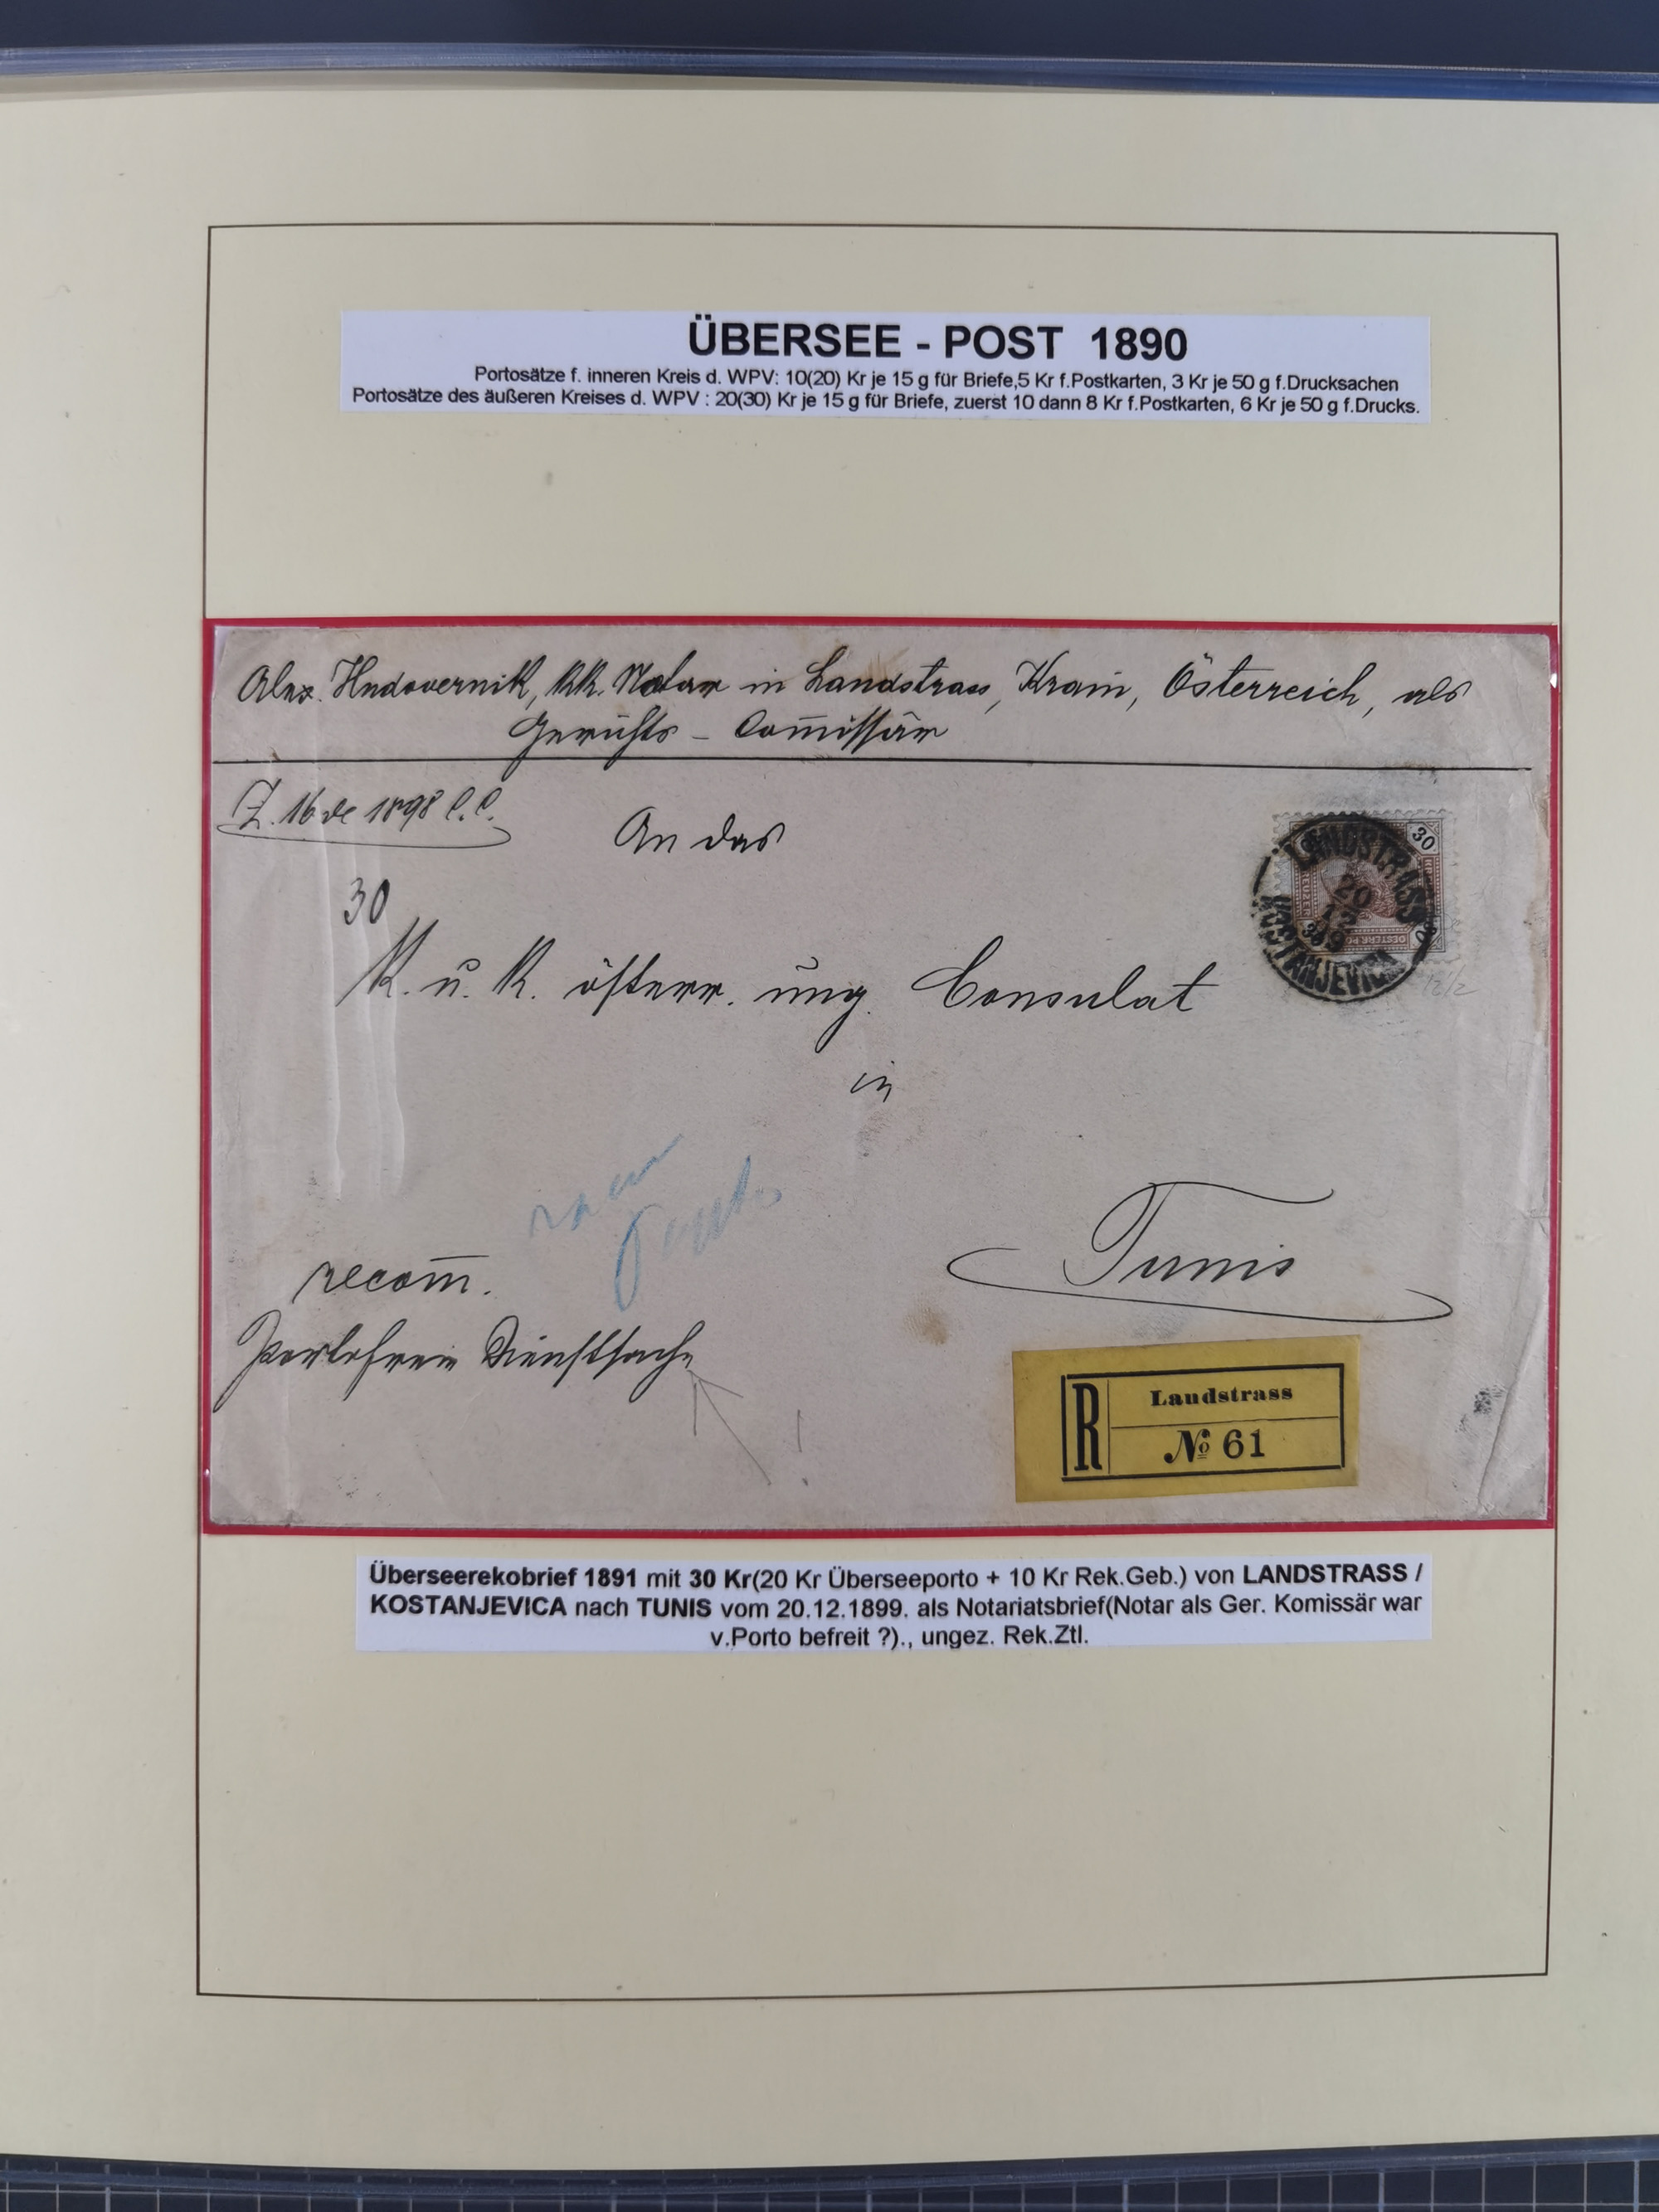 ÜBERSEE - POST 1890
Portosätze f. inneren Kreis d. WPV: 10(20) Kr je 15 g für Briefe,5 Kr f.Postkarten, 3 Kr je 50 g f.Drucksachen
Portosätze des äußeren Kreises d. WPV : 20(30) Kr je 15 g für Briefe, zuerst 10 dann 8 Kr f.Postkarten, 6 Kr je 50 g f.Drucks.
Alex. Hudovernik, kk. Notar in Landstrass, Krain, Österreich, als
Gerichts - Com̅issär
Z. 16 de 1898 C.C.
An das
30
30
LANDSTRASS
20
12
KOSTANJEVICA
K. u. K. österr. ung. Consulat
in
Tunis
recom̅.
Portofreie Dienstsache
!
R
Landstrass
№ 61
Überseerekobrief 1891 mit 30 Kr(20 Kr Überseeporto + 10 Kr Rek.Geb.) von LANDSTRASS /
KOSTANJEVICA nach TUNIS vom 20.12.1899. als Notariatsbrief(Notar als Ger. Komissär war
v.Porto befreit ?)., ungez. Rek.Ztl.